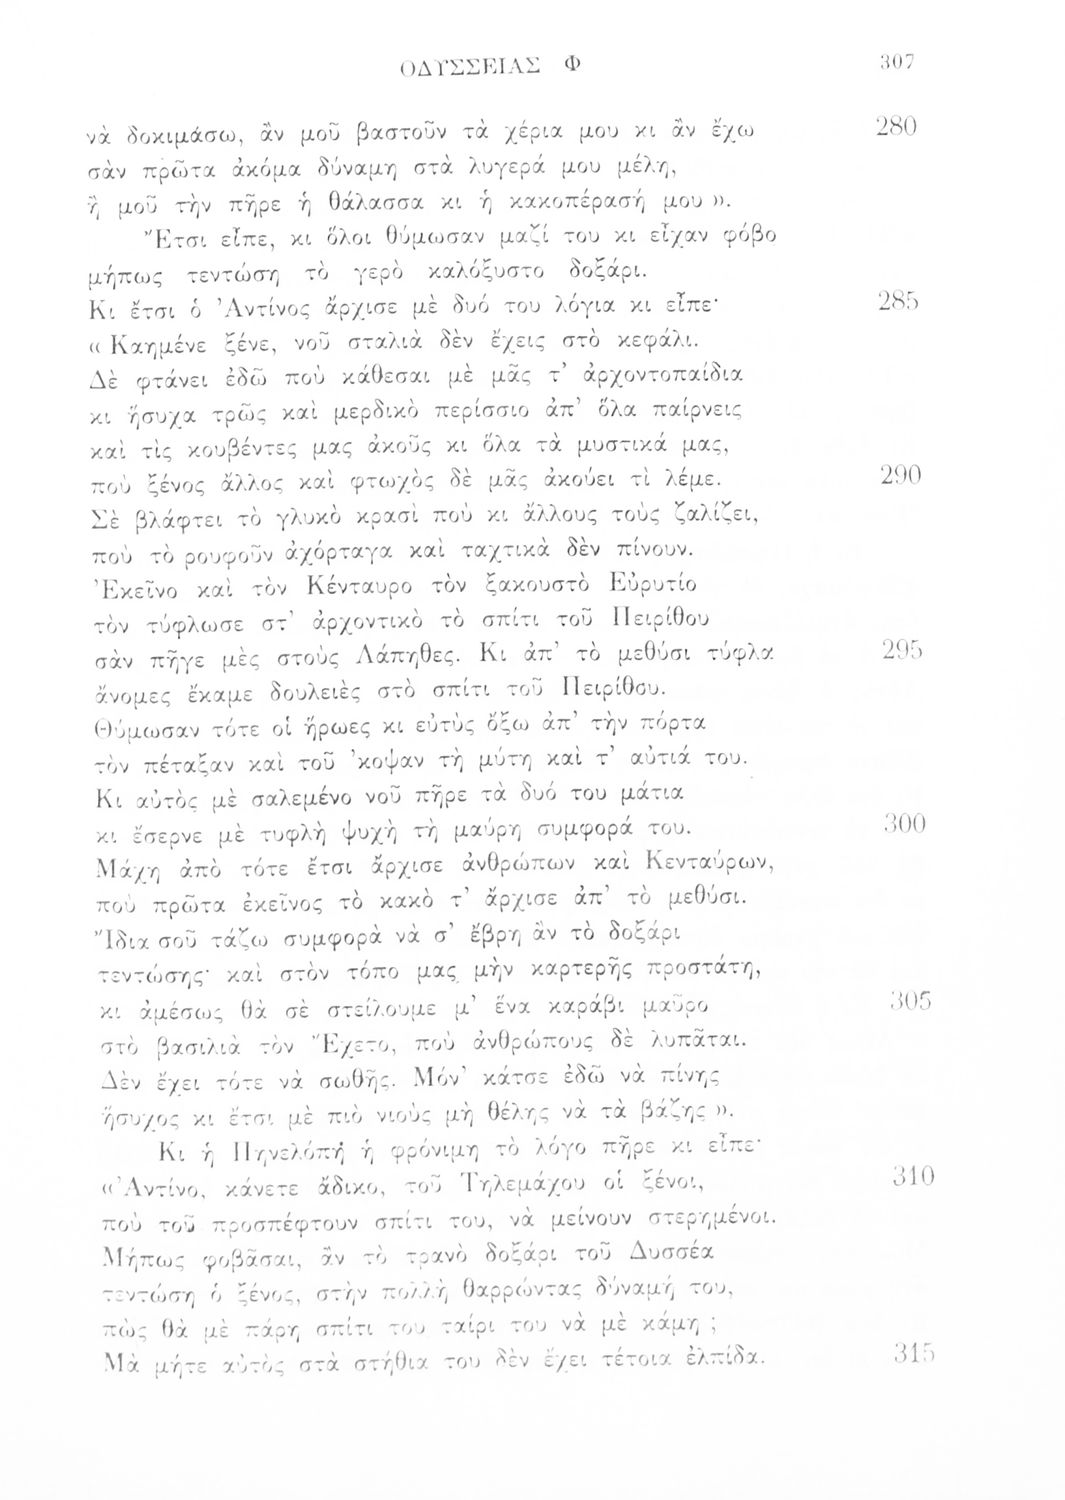 ΟΔΥΣΣΕΙΑΣ Φ 307
νὰ δοκιμάσω, ἂν μοῦ βαστοῦν τὰ χέρια μου κι ἂν ἔχω 280
σὰν πρῶτα ἀκόμα δύναμη στὰ λυγερά μου μέλη,
ἢ μοῦ τὴν πῆρε ἡ θάλασσα κι ἡ κακοπέρασή μου ».
Ἔτσι εἶπε, κι ὅλοι θύμωσαν μαζί του κι εἶχαν φόβο
μήπως τεντώση τὸ γερὸ καλόξυστο δοξάρι.
Κι ἔτσι ὁ Ἀντίνος ἄρχισε μὲ δυό του λόγια κι εἶπε· 285
« Καημένε ξένε, νοῦ σταλιὰ δὲν ἔχεις στὸ κεφάλι.
Δὲ φτάνει ἐδῶ ποὺ κάθεσαι μὲ μᾶς τ’ ἀρχοντοπαίδια
κι ἥσυχα τρῶς καὶ μερδικὸ περίσσιο ἀπ’ ὅλα παίρνεις
καὶ τὶς κουβέντες μας ἀκοῦς κι ὅλα τὰ μυστικά μας,
ποὺ ξένος ἄλλος καὶ φτωχὸς δὲ μᾶς ἀκούει τὶ λέμε. 290
Σὲ βλάφτει τὸ γλυκὸ κρασὶ ποὺ κι ἄλλους τοὺς ζαλίζει,
ποὺ τὸ ρουφοῦν ἀχόρταγα καὶ ταχτικὰ δὲν πίνουν.
Ἐκεῖνο καὶ τὸν Κένταυρο τὸν ξακουστὸ Εὐρυτίο
τὸν τύφλωσε στ’ ἀρχοντικὸ τὸ σπίτι τοῦ Πειρίθου
σὰν πῆγε μὲς στοὺς Λάπηθες. Κι ἀπ’ τὸ μεθύσι τύφλα 295
ἄνομες ἔκαμε δουλειὲς στὸ σπίτι τοῦ Πειρίθου.
Θύμωσαν τότε οἱ ἥρωες κι εὐτὺς ὄξω ἀπ’ τὴν πόρτα
τὸν πέταξαν καὶ τοῦ ’κοψαν τὴ μύτη καὶ τ’ αὐτιά του.
Κι αὐτὸς μὲ σαλεμένο νοῦ πῆρε τὰ δυό του μάτια
κι ἔσερνε μὲ τυφλὴ ψυχὴ τὴ μαύρη συμφορά του. 300
Μάχη ἀπὸ τότε ἔτσι ἄρχισε ἀνθρώπων καὶ Κενταύρων,
ποὺ πρῶτα ἐκεῖνος τὸ κακὸ τ’ ἄρχισε ἀπ’ τὸ μεθύσι.
Ἴδια σοῦ τάζω συμφορὰ νὰ σ’ ἔβρη ἂν τὸ δοξάρι
τεντώσης· καὶ στὸν τόπο μας μὴν καρτερῆς προστάτη,
κι ἀμέσως θὰ σὲ στείλουμε μ’ ἕνα καράβι μαῦρο 305
στὸ βασιλιὰ τὸν Ἔχετο, ποὺ ἀνθρώπους δὲ λυπᾶται.
Δὲν ἔχει τότε νὰ σωθῆς. Μόν’ κάτσε ἐδῶ νὰ πίνης
ἥσυχος κι ἔτσι μὲ πιὸ νιοὺς μὴ θέλης νὰ τὰ βάζης ».
Κι ἡ Πηνελόπη ἡ φρόνιμη τὸ λόγο πῆρε κι εἶπε·
« Ἀντίνο, κάνετε ἄδικο, τοῦ Τηλεμάχου οἱ ξένοι, 310
ποὺ τοῦ προσπέφτουν σπίτι του, νὰ μείνουν στερημένοι.
Μήπως φοβᾶσαι, ἂν τὸ τρανὸ δοξάρι τοῦ Δυσσέα
τεντώση ὁ ξένος, στὴν πολλὴ θαρρώντας δύναμή του,
πὼς θὰ μὲ πάρη σπίτι του ταίρι του νὰ μὲ κάμη ;
Μὰ μήτε αὐτὸς στὰ στήθια του δὲν ἔχει τέτοια ἐλπίδα. 315